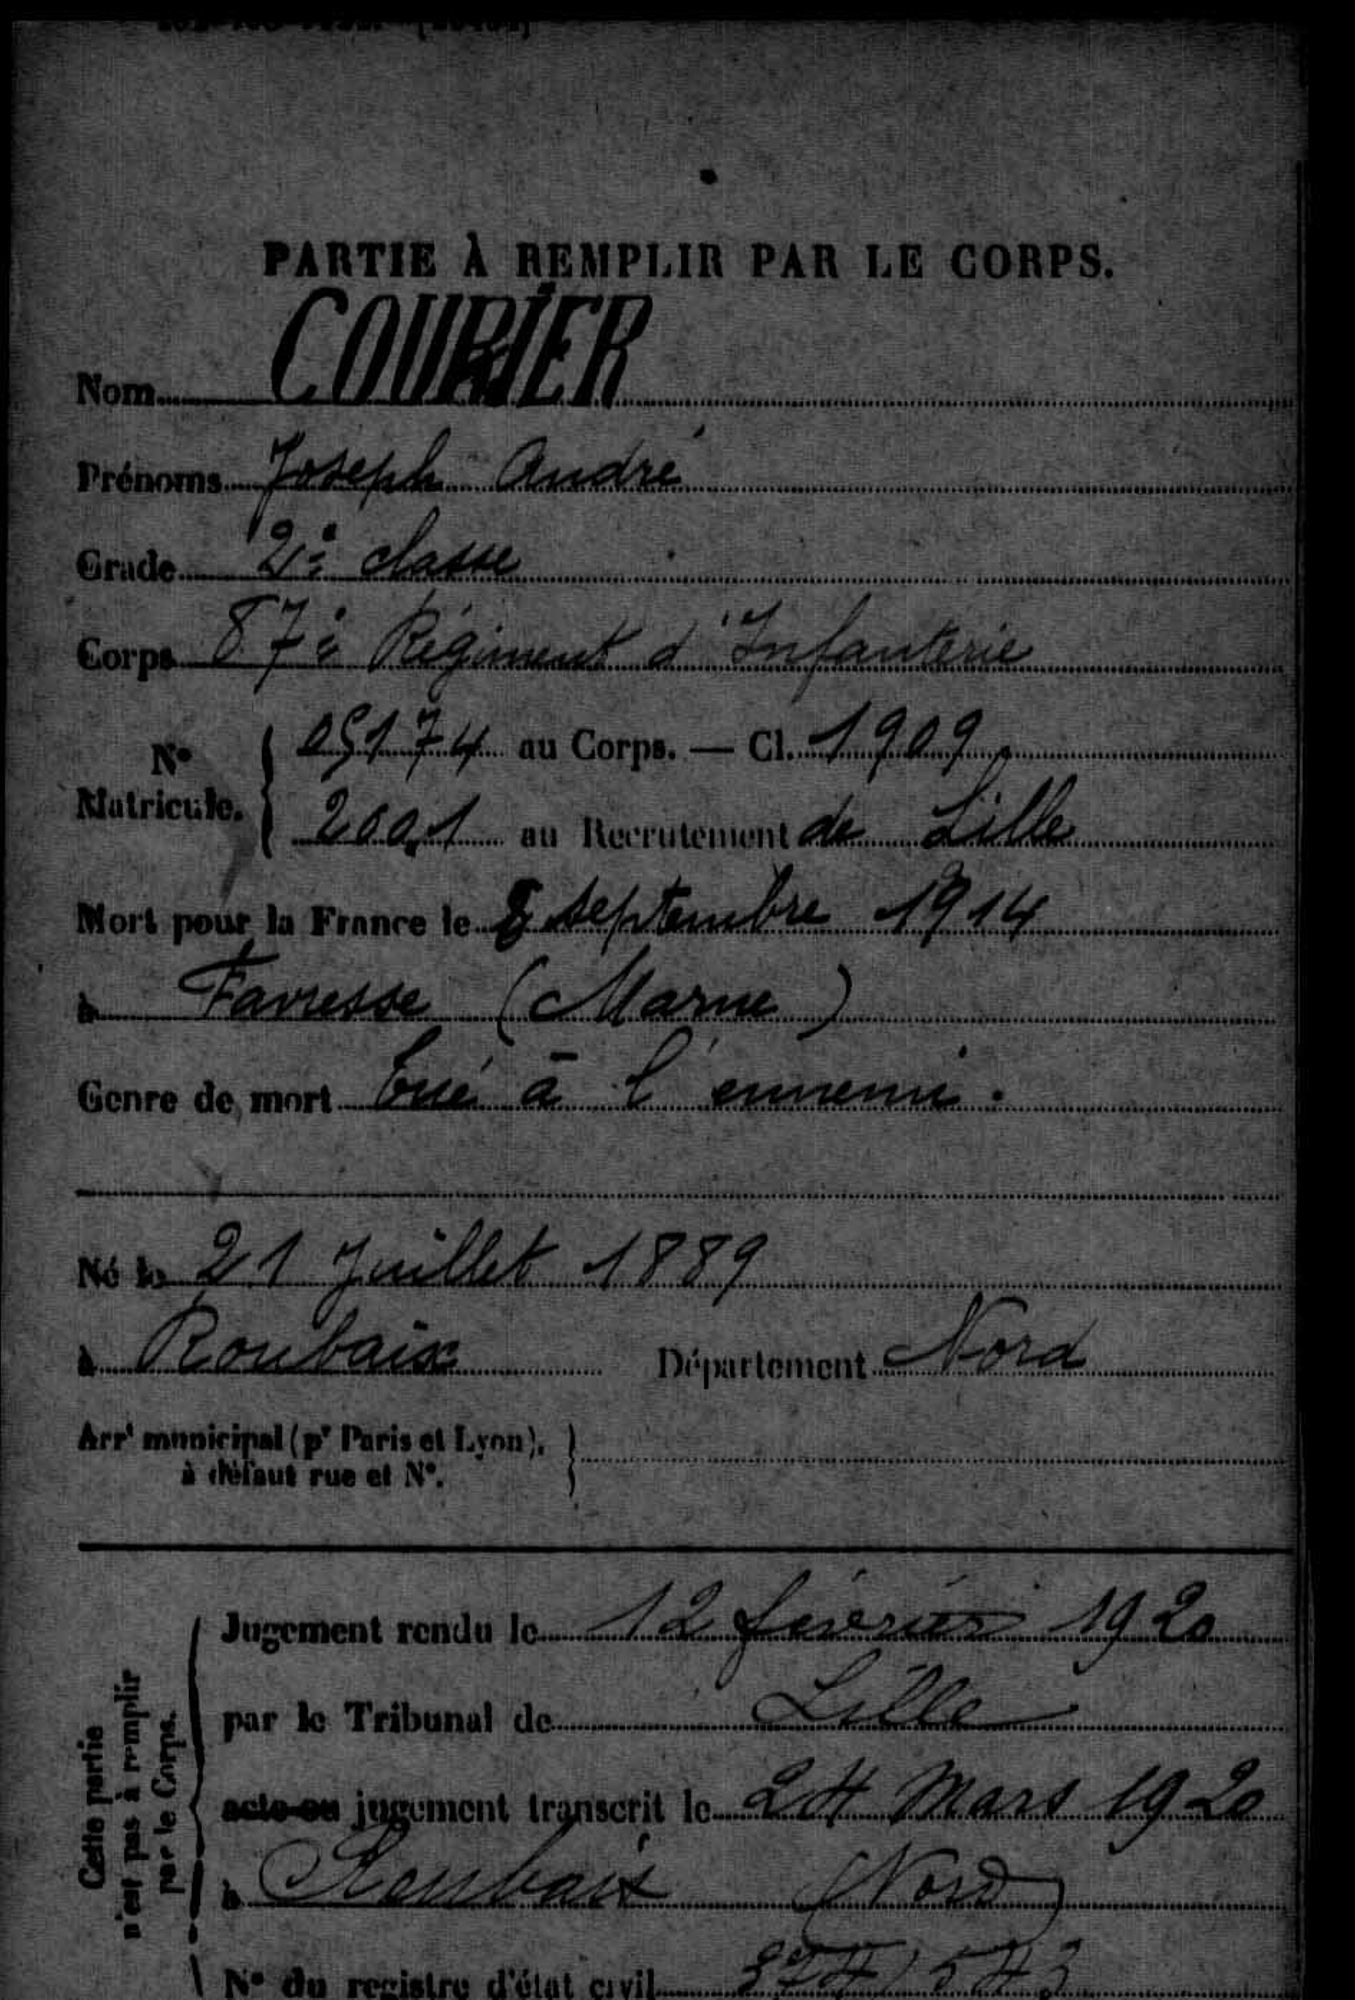 PARTIE À REMPLIR PAR LE CORPS.
Nom COURIER
Prénoms Joseph André
Grade 2e classe
Corps 87e Régiment d'Infanterie
No Matricule. { 05174 au Corps. — Cl. 1909
2001 au Recrutement de Lille
Mort pour la France le 8 septembre 1914
à Favresse (Marne)
Genre de mort Tué à l'ennemi.
Né le 21 Juillet 1889
à Roubaix Département Nord
Arrt municipal (pr Paris et Lyon),
à défaut rue et No.
Cette partie
n'est pas à remplir
par le Corps.
Jugement rendu le 12 février 1920
par le Tribunal de Lille
acte ou jugement transcrit le 24 Mars 1920
à Roubaix (Nord)
No du registre d'état civil